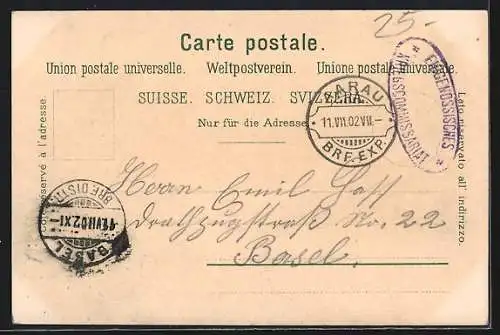 25-
Carte postale.
Union postale universelle. Weltpostverein. Unione postale universale.
SUISSE. SCHWEIZ. SVIZZERA.
Nur für die Adresse
Côté réservé à l'adresse.
Lato riservato all' indirizzo.
AARAU
11.VII.02 VII.-
BRF. EXP.
EIDGENÖSSISCHES
KRIEGSCOMMISSARIAT
Herrn Emil
No. 22
Basel.
BRF. DISTR.
11.VII.02.XI-
BASEL